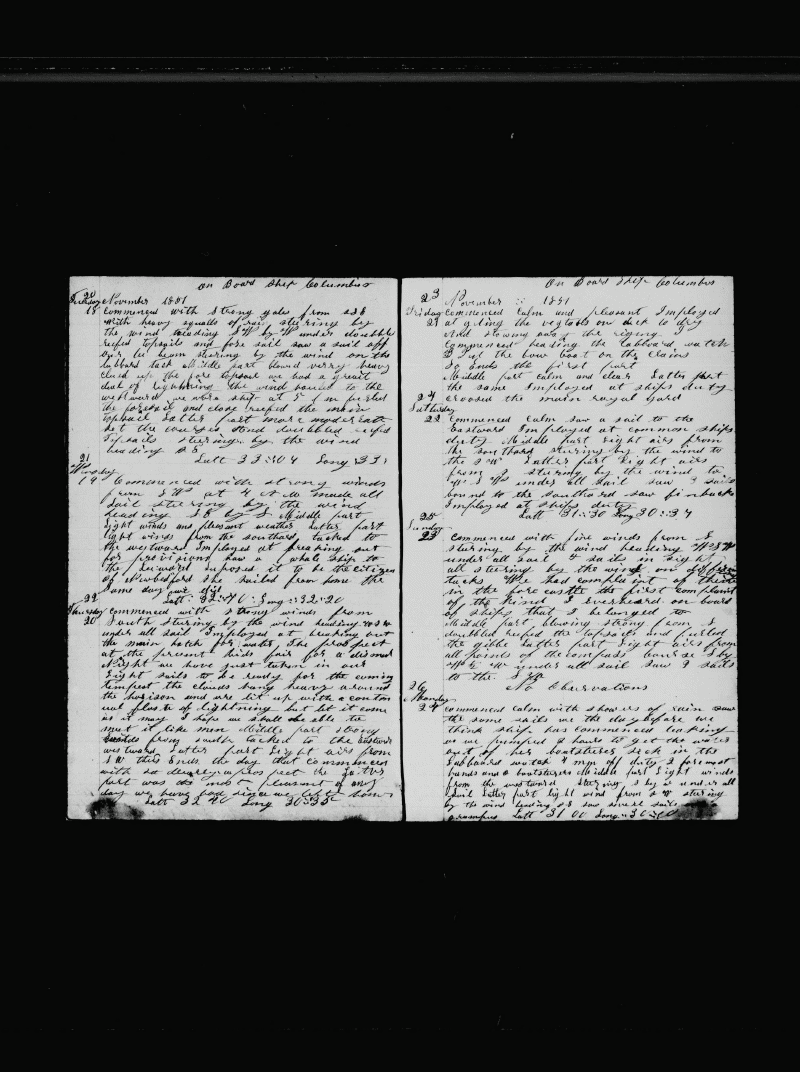 On Board Ship Columbus
20
Tuesday November 1851
18 Commenced with strong gales from SSE
With heavy squalls of rain steering by
the wind heading SW by W under double
reefed topsails and fore sail saw a sail off
by the wind on the
larboard tack Middle part blowed verry heavy
clued up the fore topsail we had a great
deal of lightning the wind to the
westward we wore ship at 5 furled
the foresail and close reefed the main
topsail Latter part more moderate
set the courses and doubled reefed
Topsails steering by the wind
heading SE
Latt 33::04 Long 33::
21
Wensday
19 Commenced with strong winds
from SW at 4 AM made all
sail steering by the wind
heading SE by S Middle part
light winds and pleasant weather Latter part
light winds from the southard tacked to
the westward Imployed at breaking out
for provisions saw a whale ship to
the leward suposed it to be the Citizen
of Newbedford she sailed from home the
same day our did
22 Latt :: 32::40 :: Long :: 32::20
Thursday commenced with strong winds from
20 South stering by the wind heading WSW
under all sail Imployed at breaking out
the main hatch for water, The prospect
at the present bids fair for a dismal
Night we have just taken in our
light sails to be ready for the coming
tempest the clouds hang heavy around
the horison and are lit up with a contin
ual flash of lightning but let it come
as it may I hope we shall be able to
meet it like men Middle part strong
winds from south tacked to the Eastward
westward Latter part Light airs from
SW this Ends the day that commenced
with so a prospect the Latter
part was as pleasant a
day we have had since we left home
Latt 32 40 Long 30::35
On Board Ship Columbus
23
November :: 1851
Friday Commenced calm and pleasant Imployed
21 at geting the vegtabls on deck to dry
And stowing away the riging
Commenced heading the Labboard watch
Put the bow boat on the Crains
So Ends the first part
Middle part calm and clear Latter part
the same Imployed at ships duty
24 crossed the main royal yard
Saturday
22 Commenced calm saw a sail to the
Eastward Imployed at common ships
duty Middle part light airs from
the southard stering by the wind to
the SW Latter part light airs
from S stering by the wind to
W S W under all sail saw 3 sails
bound to the southard saw finbacks
Imployed at ships duty
25 Latt 31::30 Long 30::34
Sunday
23 commenced with fine winds from S
stering by the wind heading WSW
under all sail sails in sight
all steering by the wind on different
tacks We had complaint of theivs
in the fore castle the first complaint
of the kind I everheard on board
of ships that I belonged to
Middle part blowing strong from S
doubled reefed the topsails and furled
the gibbe Latter part light airs from
all points of the compass course S by
W & W under all sail saw 9 sails
to the
No Observations
26
Monday
24 commenced calm with showers of rain saw
the same sails we the day before we
think ship has commenced leaking
as we pumped 2 hours to get the water
out of her boatsterers sick in the
Labboard watch 4 men off duty 2 foremast
hands and 2 boatsterers Middle part Light winds
from the westward stering S by W under all
sail Latter part light wind from SW stering
by the wind heading SE saw several sails
grampus Latt 31 00 Long :: 30::